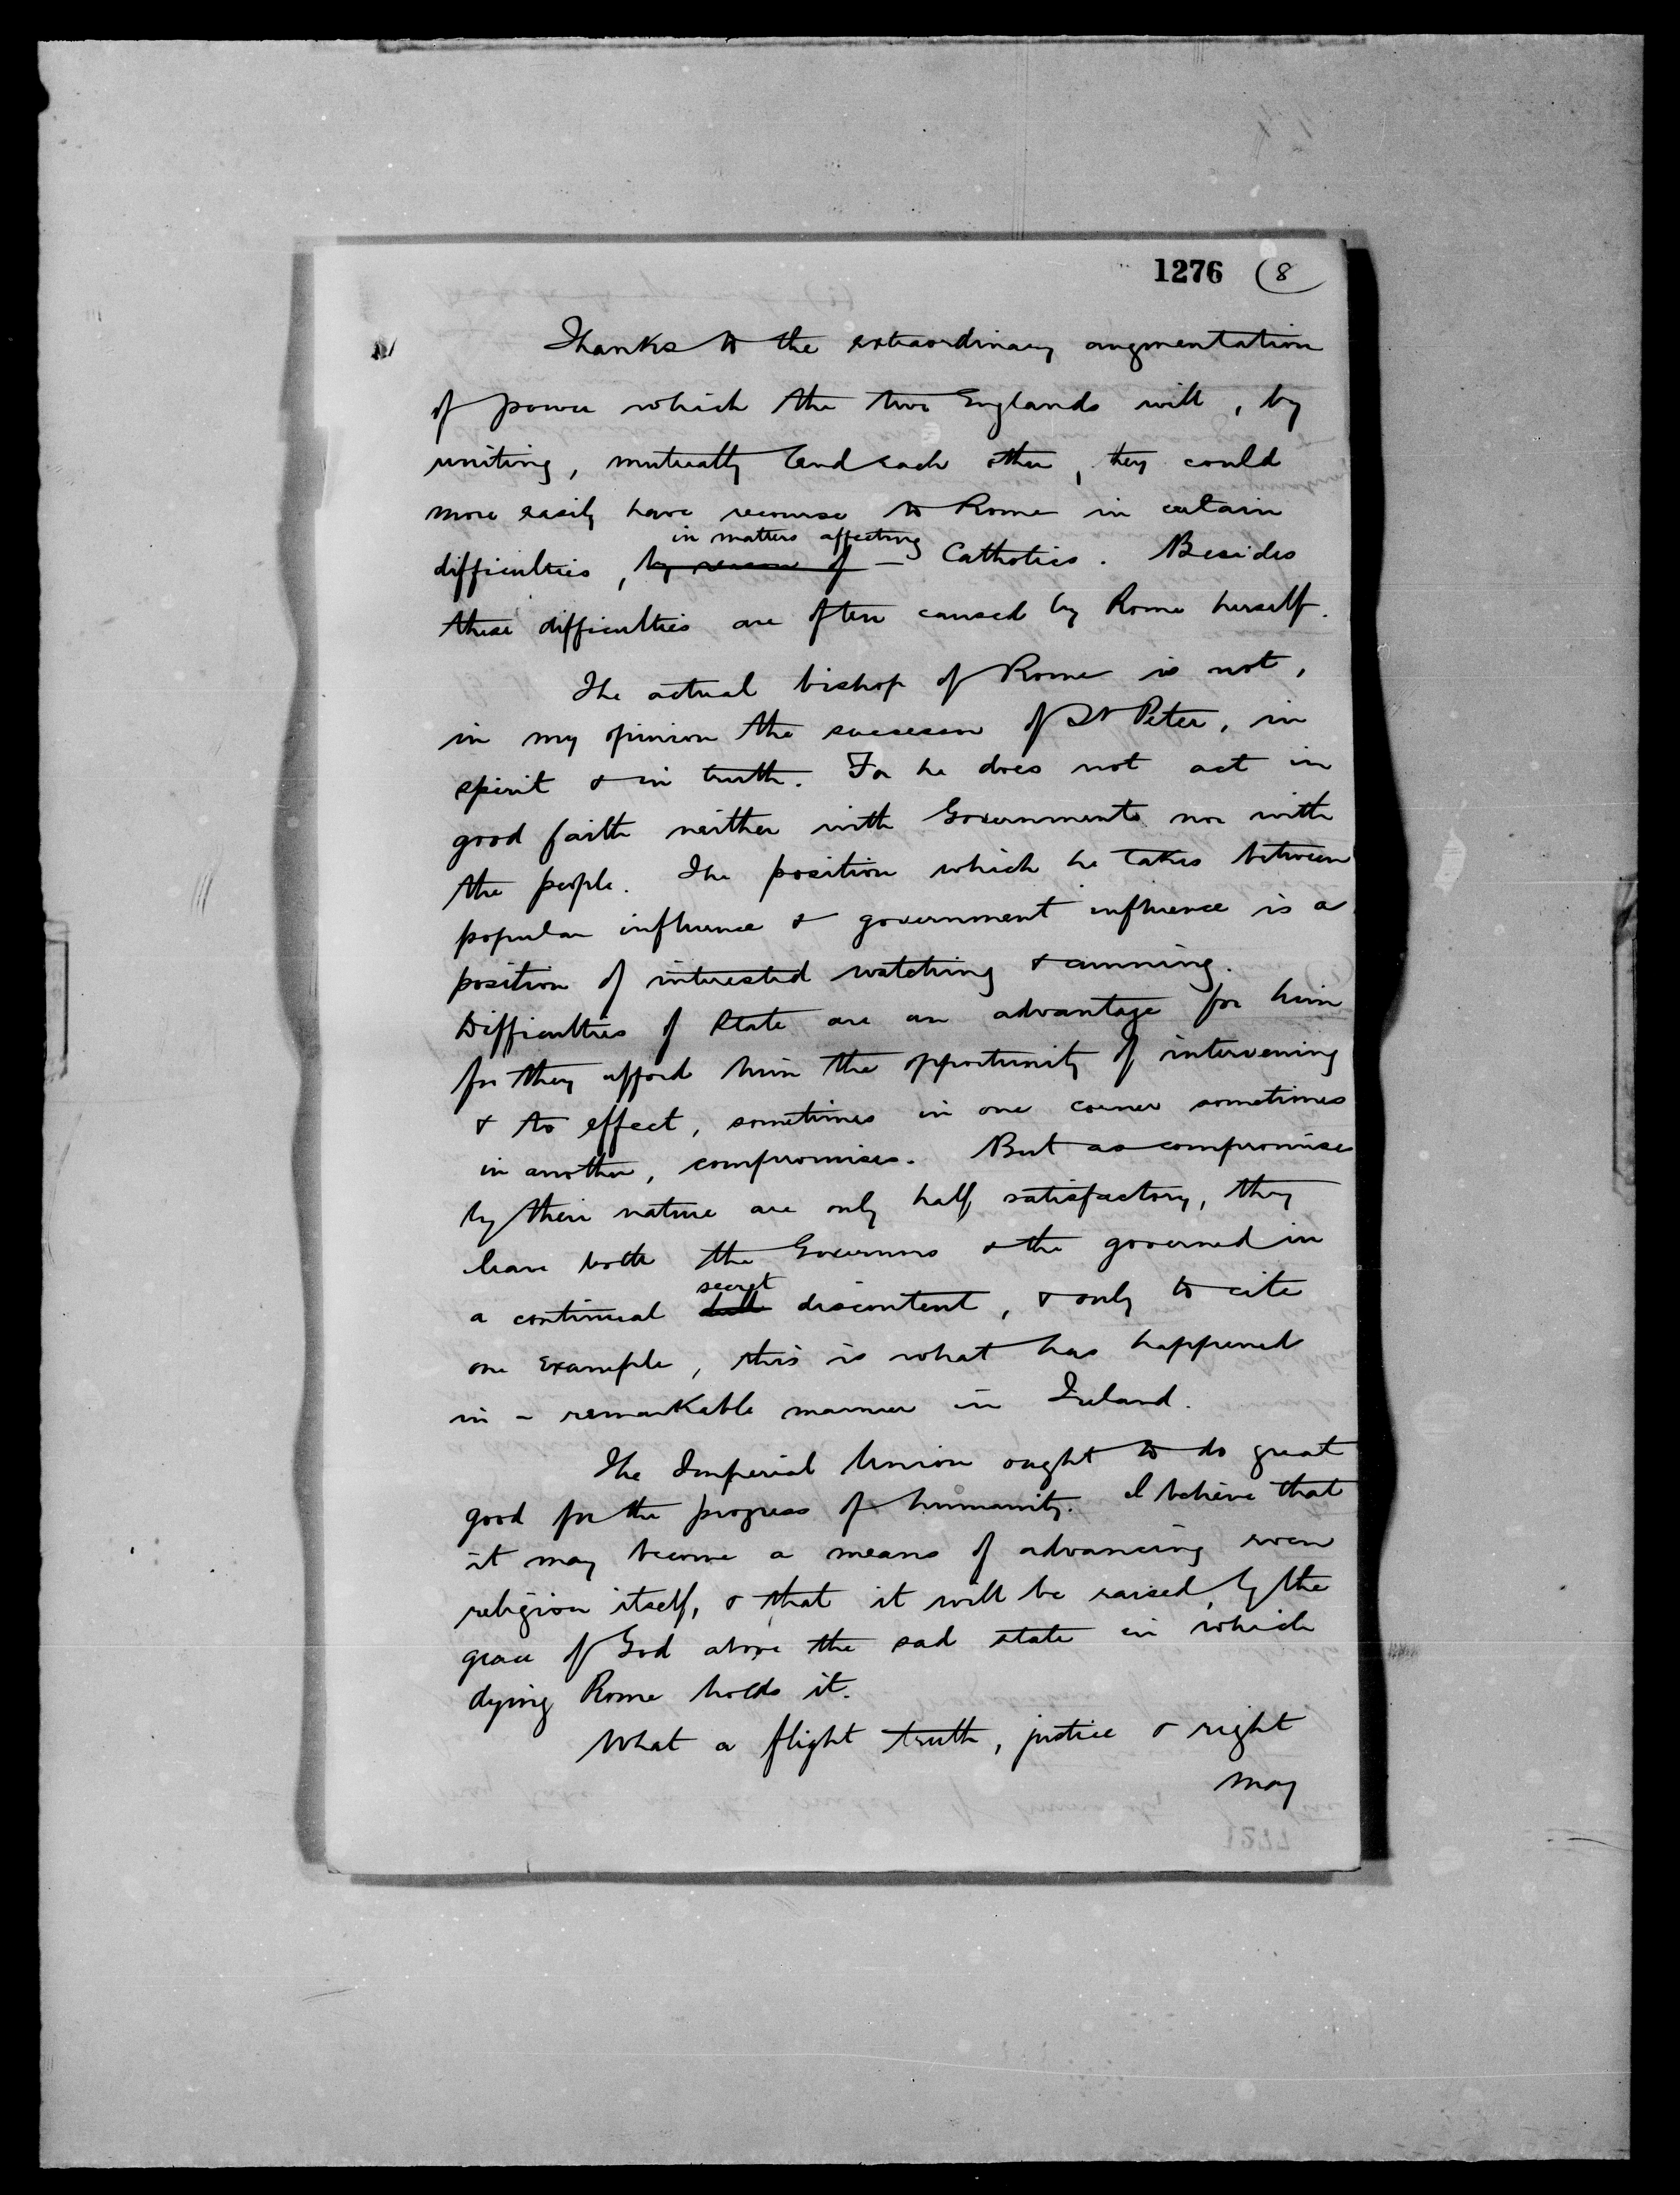 1276 (8
Thanks to the extraordinary augmentation
of power which the two Englands will, by
uniting, mutually lend each other, they could
more easily have recourse to Rome in certain
in matters affecting
difficulties, by reason of — Catholics. Besides
these difficulties are often caused by Rome herself.
The actual bishop of Rome is not,
in my opinion the successor of St Peter, in
spirit & in truth. For he does not act in
good faith neither with Governments nor with
the people. The position which he takes between
popular influence & government influence is a
position of interested watching & cunning.
Difficulties of State are an advantage for him
for they afford him the opportunity of intervening
& to effect, sometimes in one corner sometimes
in another, compromises. But as compromises
by their nature are only half satisfactory, they
leave both the Governors & the governed in
secret
a continual dull discontent, & only to cite
one example, this is what has happened
in a remarkable manner in Ireland.
The Imperial Union ought to do great
good for the progress of humanity. I believe that
it may become a means of advancing even
religion itself, & that it will be raised by the
grace of God above the sad state in which
dying Rome holds it.
What a flight truth, justice & right
may